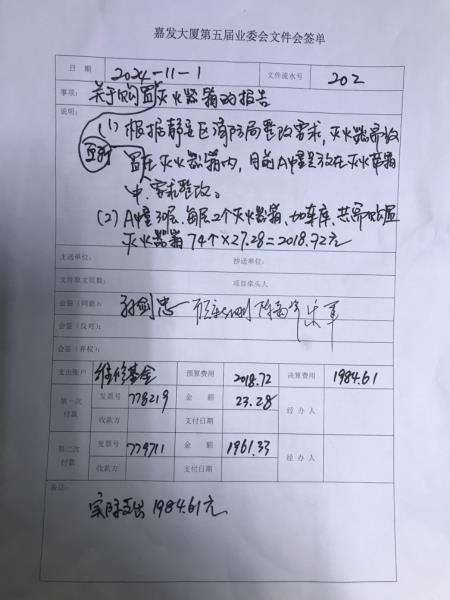 嘉发大厦第五届业委会文件会签单
日 期 2024-11-1 文件流水号 202
事项: 关于购置灭火器箱的报告
说明:
(1) 根据静安区消防局整改要求,灭火器需放
置在灭火器箱内,目前A幢是放在灭火草箱
中,要求整改。
(2) A幢30层,每层2个灭火器箱、加车库、共需购置
灭火器箱 74个×27.28=2018.72元
主送单位: 抄送单位:
文件收文页数: 项目牵头人
会签(同意):
会签(反对):
会签(弃权):
支出账户 维修基金 预算费用 2018.72 决算费用 1984.61
第一次付款 发票号 778219 金 额 23.28 经 办 人
收款方 支付日期
第二次付款 发票号 779711 金 额 1961.33 经 办 人
收款方 支付日期
备注:
实际支出 1984.61元